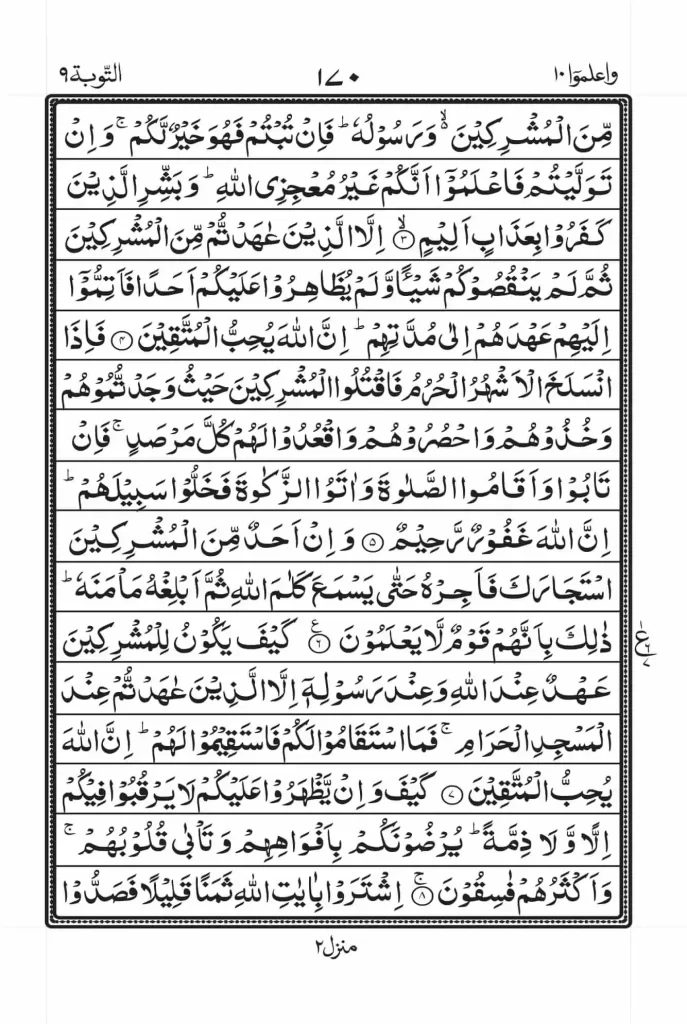 واعلموٓا ١٠ ١٧٠ التّوبة ٩
مِّنَ الْمُشْرِكِيْنَ ۙ۬ وَرَسُوْلُهٗ ؕ فَاِنْ تُبْتُمْ فَهُوَ خَيْرٌ لَّكُمْ ۚ وَاِنْ
تَوَلَّيْتُمْ فَاعْلَمُوْۤا اَنَّكُمْ غَيْرُ مُعْجِزِى اللّٰهِ ؕ وَبَشِّرِ الَّذِيْنَ
كَفَرُوْا بِعَذَابٍ اَلِيْمٍ ۙ﴿۳﴾ اِلَّا الَّذِيْنَ عٰهَدْتُّمْ مِّنَ الْمُشْرِكِيْنَ
ثُمَّ لَمْ يَنْقُصُوْكُمْ شَيْـًٔا وَّلَمْ يُظَاهِرُوْا عَلَيْكُمْ اَحَدًا فَاَتِمُّوْۤا
اِلَيْهِمْ عَهْدَهُمْ اِلٰى مُدَّتِهِمْ ؕ اِنَّ اللّٰهَ يُحِبُّ الْمُتَّقِيْنَ ﴿۴﴾ فَاِذَا
انْسَلَخَ الْاَشْهُرُ الْحُرُمُ فَاقْتُلُوا الْمُشْرِكِيْنَ حَيْثُ وَجَدْتُّمُوْهُمْ
وَخُذُوْهُمْ وَاحْصُرُوْهُمْ وَاقْعُدُوْا لَهُمْ كُلَّ مَرْصَدٍ ۚ فَاِنْ
تَابُوْا وَاَقَامُوا الصَّلٰوةَ وَاٰتَوُا الزَّكٰوةَ فَخَلُّوْا سَبِيْلَهُمْ ؕ
اِنَّ اللّٰهَ غَفُوْرٌ رَّحِيْمٌ ﴿۵﴾ وَاِنْ اَحَدٌ مِّنَ الْمُشْرِكِيْنَ
اسْتَجَارَكَ فَاَجِرْهُ حَتّٰى يَسْمَعَ كَلٰمَ اللّٰهِ ثُمَّ اَبْلِغْهُ مَاْمَنَهٗ ؕ
ذٰلِكَ بِاَنَّهُمْ قَوْمٌ لَّا يَعْلَمُوْنَ ﴿۶﴾ ع كَيْفَ يَكُوْنُ لِلْمُشْرِكِيْنَ
عَهْدٌ عِنْدَ اللّٰهِ وَعِنْدَ رَسُوْلِهٖۤ اِلَّا الَّذِيْنَ عٰهَدْتُّمْ عِنْدَ
الْمَسْجِدِ الْحَرَامِ ۚ فَمَا اسْتَقَامُوْا لَكُمْ فَاسْتَقِيْمُوْا لَهُمْ ؕ اِنَّ اللّٰهَ
يُحِبُّ الْمُتَّقِيْنَ ﴿۷﴾ كَيْفَ وَاِنْ يَّظْهَرُوْا عَلَيْكُمْ لَا يَرْقُبُوْا فِيْكُمْ
اِلًّا وَّلَا ذِمَّةً ؕ يُرْضُوْنَكُمْ بِاَفْوَاهِهِمْ وَتَاْبٰى قُلُوْبُهُمْ ۚ
وَاَكْثَرُهُمْ فٰسِقُوْنَ ۚ﴿۸﴾ اِشْتَرَوْا بِاٰيٰتِ اللّٰهِ ثَمَنًا قَلِيْلًا فَصَدُّوْا
منزل ٢